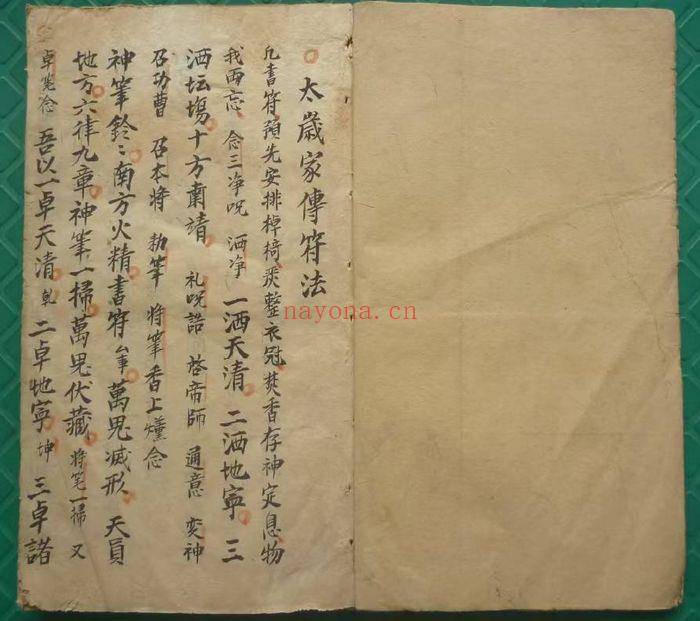 太歲家傳符法
凡書符預先安排棹椅整衣冠焚香存神定息物
我両忘 念三净呪 洒净 一洒天清 二洒地寧 三
洒坛塲十方肅靖 礼呪誥 啓帝師 通意 变神
召功曹 召本将 勅筆 将筆香上燻念
神筆鈴〻南方火精書符 萬鬼滅形 天員
地方六律九章神筆一掃萬鬼伏藏 将笔一掃 又
卓笔念 吾以一卓天清 乾 二卓地寧 坤 三卓諾
nayona.cn